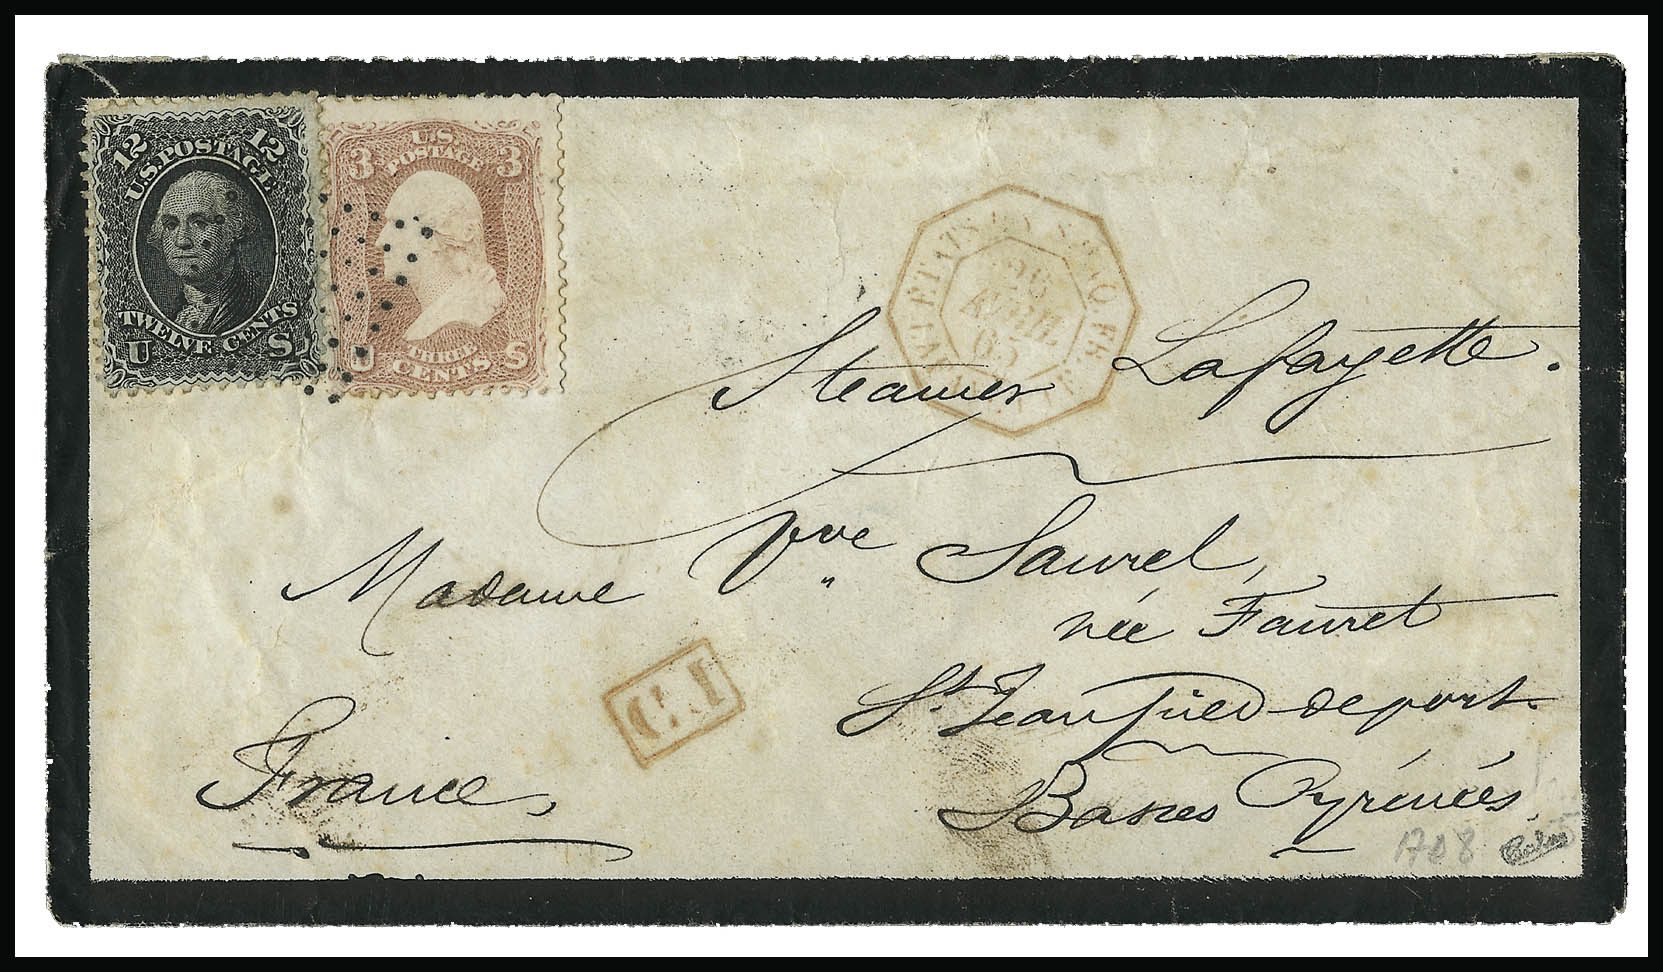 12 12
U.S. POSTAGE
TWELVE CENTS
U S
U.S.
POSTAGE
3 3
THREE
CENTS
U S
26
AVRIL
65
Steamer Lafayette.
Madame Vve Saurel,
née Fauret
St. Jean pied-de port.
Basses Pyrénées,
France,
P.D.
1708